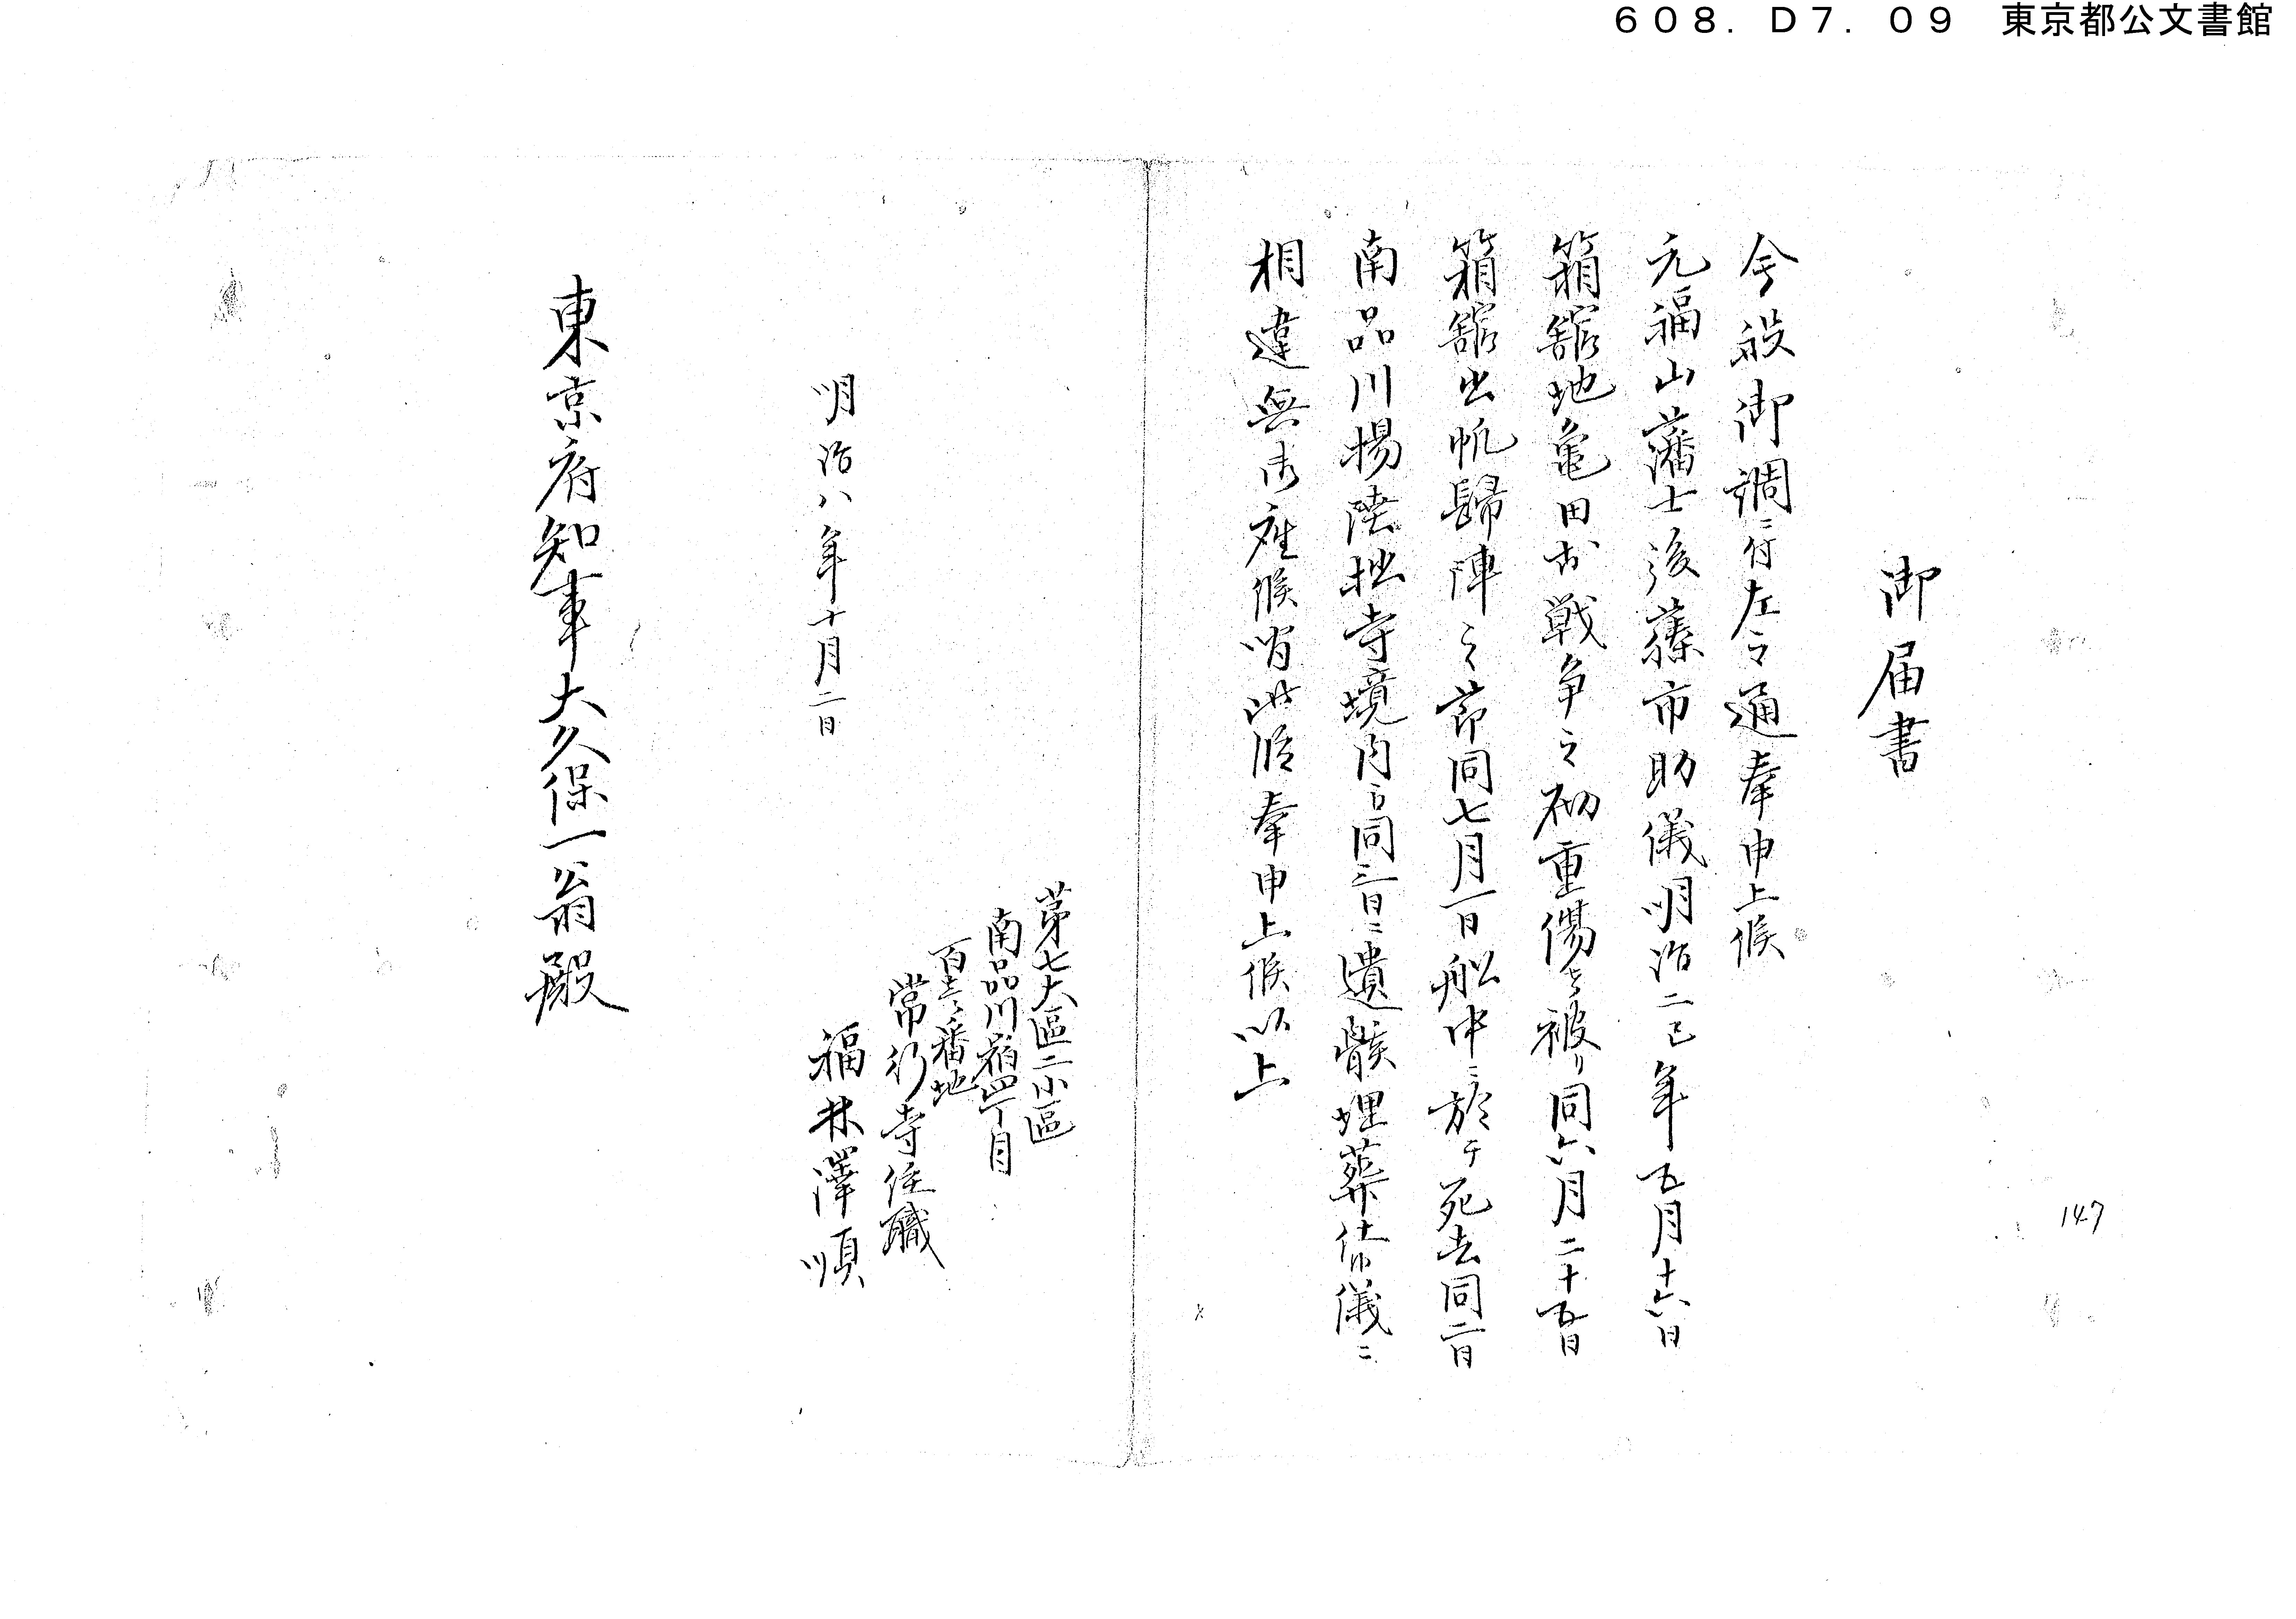 608. D7. 09 東京都公文書館
御届書
今般御調ニ付左之通奉申上候
元福山藩士後藤市助儀明治二己年五月十六日
箱舘地亀田於戦争之砌重傷を被り同六月二十五日
箱舘出帆歸陣之節同七月一日舩中ニ於テ死去同二日
南品川揚陸拙寺境内江同三日ニ遺骸埋葬仕候儀ニ
相違無御座候間此段奉申上候以上
147
第七大區二小區
南品川宿四丁目
百壱番地
常行寺住職
福林澤順
明治八年十月二日
東京府知事大久保一翁殿